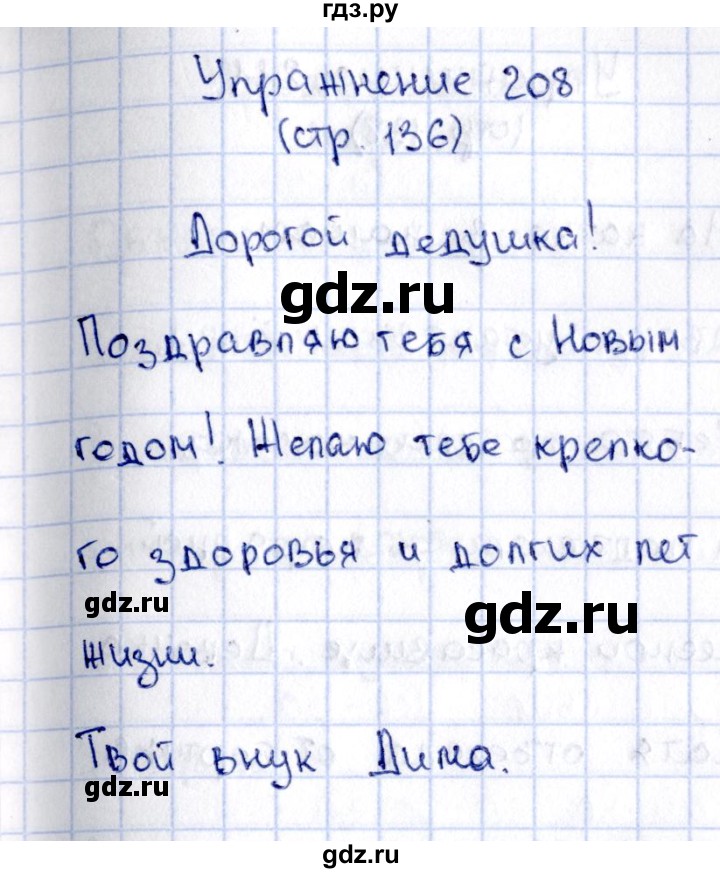 гдз.ру
Упражнение 208
(стр. 136)
Дорогой дедушка!
gdz.ru
Поздравляю тебя с Новым
годом! Желаю тебе крепко-
го здоровья и долгих лет
gdz.ru
gdz.ru
жизни.
Твой внук Дима.
gdz.ru
gdz.ru